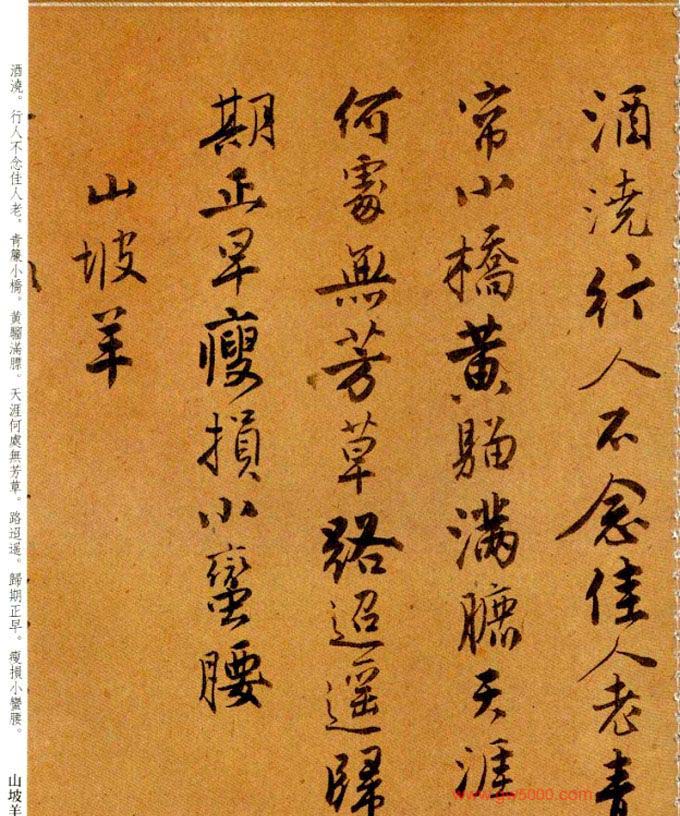 酒澆行人不念佳人老青
帘小橋黃騮滿臕天涯
何處無芳草路迢遥歸
期正早瘦損小蠻腰
山坡羊
酒澆。行人不念佳人老。青簾小橋。黃騮滿膘。天涯何處無芳草。路迢遥。歸期正早。瘦損小蠻腰。
山坡羊
www.gw5000.com